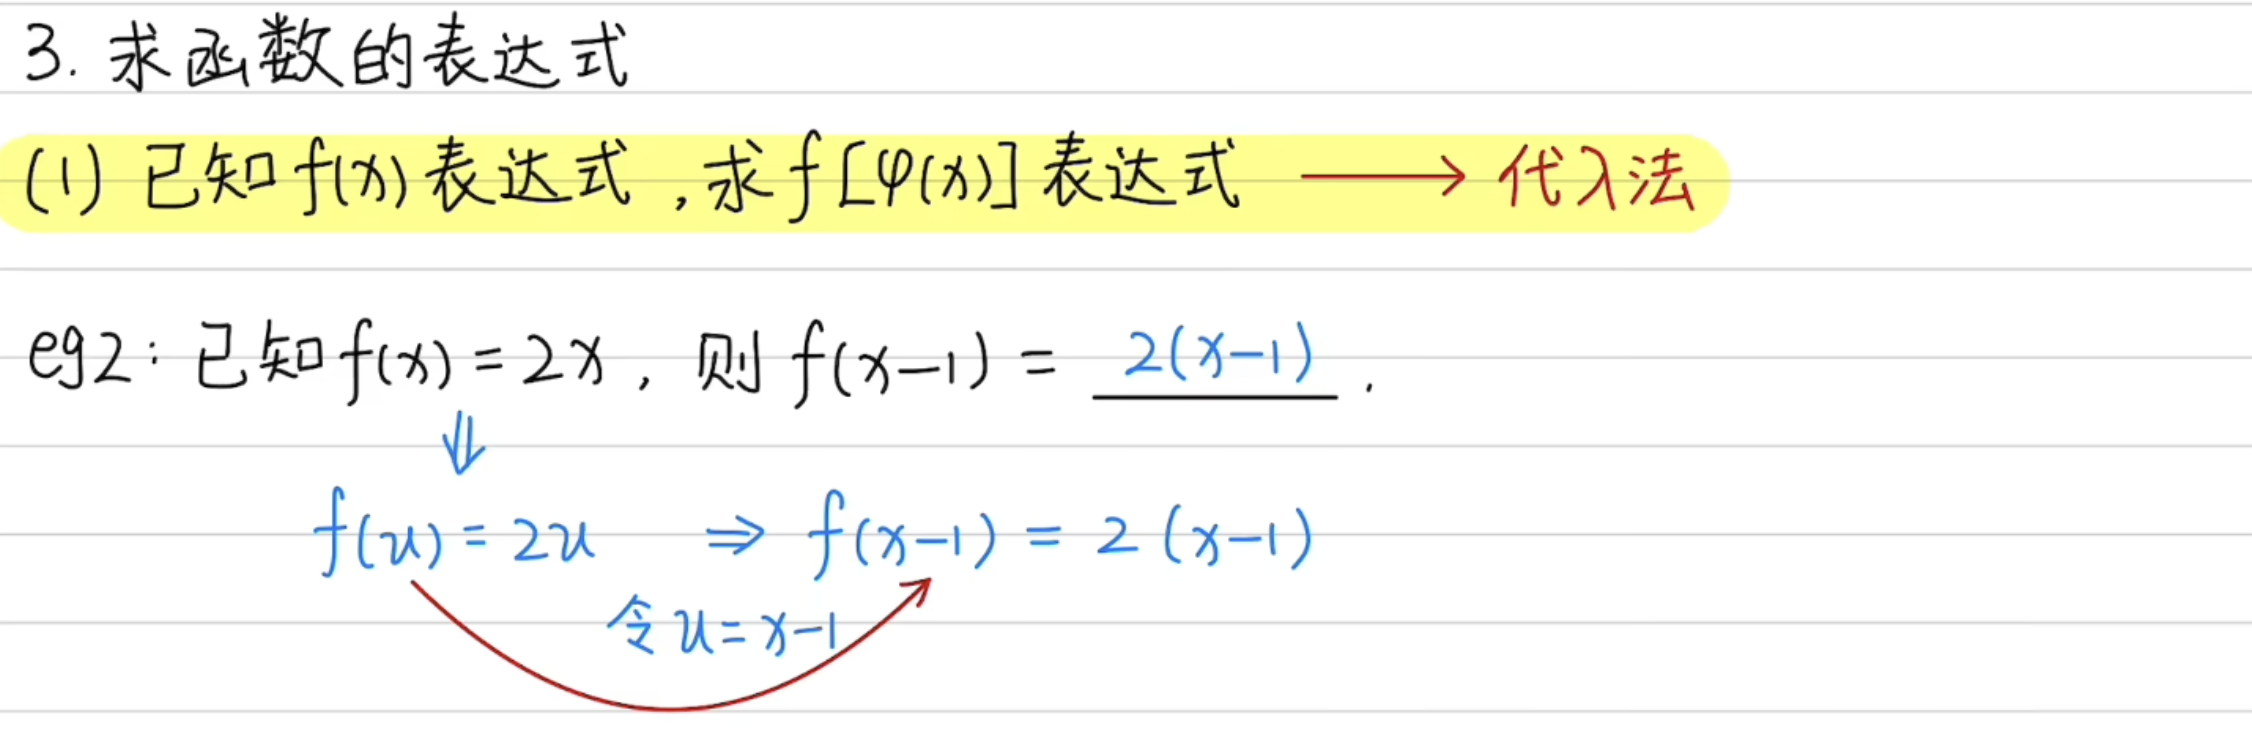 3. 求函数的表达式
(1) 已知f(x)表达式,求f[φ(x)]表达式 ⟶ 代入法
eg2: 已知f(x)=2x, 则f(x-1)= 2(x-1) .
⇓
f(u)=2u ⇒ f(x-1)=2(x-1)
令u=x-1